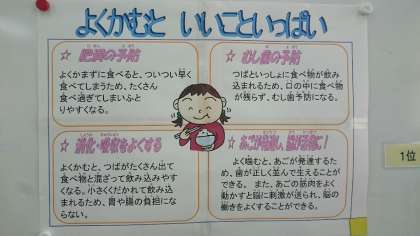 よくかむと いいこといっぱい
☆ 肥満の予防
よくかまずに食べると、ついつい早く
食べてしまうため、たくさん
食べ過ぎてしまいふと
りやすくなる。
☆ むし歯の予防
つばといっしょに食べ物が飲み
込まれるため、口の中に食べ物
が残らず、むし歯予防になる。
☆ 消化・吸収をよくする
よくかむと、つばがたくさん出て
食べ物と混ざって飲み込みやす
くなる。小さくくだかれて飲み込
まれるため、胃や腸の負担にな
らない。
よく噛むと、あごが発達するた
め、歯が正しく並んで生えることが
できる。また、あごの筋肉をよく
動かすと脳に刺激が送られ、脳の
働きをよくすることができる。
1位